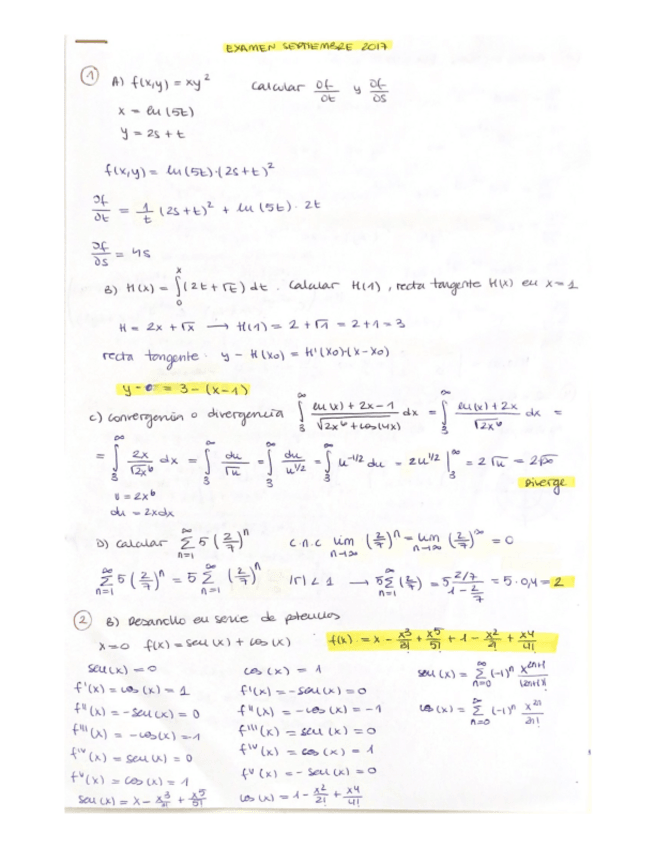 EXAMEN SEPTIEMBRE 2017
① A) f(x,y) = xy² Calcular ∂f/∂t y ∂f/∂s
x = ln(5t)
y = 2s + t
f(x,y) = ln(5t)·(2s+t)²
∂f/∂t = 1/t (2s+t)² + ln(5t)·2t
∂f/∂s = 4s
B) H(x) = ∫₀ˣ (2t + √t) dt. Calcular H(1), recta tangente H(x) en x=1
H = 2x + √x → H(1) = 2 + √1 = 2+1 = 3
recta tangente. y - H(x0) = H'(x0)·(x-x0)
y - 0 = 3 - (x-1)
C) convergencia o divergencia ∫₃^∞ (ln(x) + 2x - 1)/√(2x⁶ + cos(4x)) dx = ∫₃^∞ (ln(x) + 2x)/√(2x⁶) dx =
= ∫₃^∞ 2x/√(2x⁶) dx = ∫₃^∞ du/√u = ∫₃^∞ du/u^(1/2) = ∫₃^∞ u^(-1/2) du = 2u^(1/2) |₃^∞ = 2√u = 2√∞
Diverge
u = 2x⁶
du = 2xdx
D) Calcular Σ_(n=1)^∞ 5(2/7)ⁿ c.n.c lim_(n→∞) (2/7)ⁿ = lim_(n→∞) (2/7)^∞ = 0
Σ_(n=1)^∞ 5(2/7)ⁿ = 5 Σ_(n=1)^∞ (2/7)ⁿ |r| < 1 → 5Σ_(n=1)^∞ (2/7) = 5 (2/7)/(1 - 2/7) = 5·0,4 = 2
② B) Desarrollo en serie de potencias
x=0 f(x) = sen(x) + cos(x) f(x) = x - x³/3! + x⁵/5! + 1 - x²/2! + x⁴/4!
sen(x) = 0 cos(x) = 1 sen(x) = Σ_(n=0)^∞ (-1)ⁿ x^(2n+1)/(2n+1)!
f'(x) = cos(x) = 1 f'(x) = -sen(x) = 0
f''(x) = -sen(x) = 0 f''(x) = -cos(x) = -1 cos(x) = Σ_(n=0)^∞ (-1)ⁿ x^(2n)/2n!
f'''(x) = -cos(x) = -1 f'''(x) = sen(x) = 0
f^IV(x) = sen(x) = 0 f^IV(x) = cos(x) = 1
f^V(x) = cos(x) = 1 f^V(x) = -sen(x) = 0
sen(x) = x - x³/3! + x⁵/5! cos(x) = 1 - x²/2! + x⁴/4!